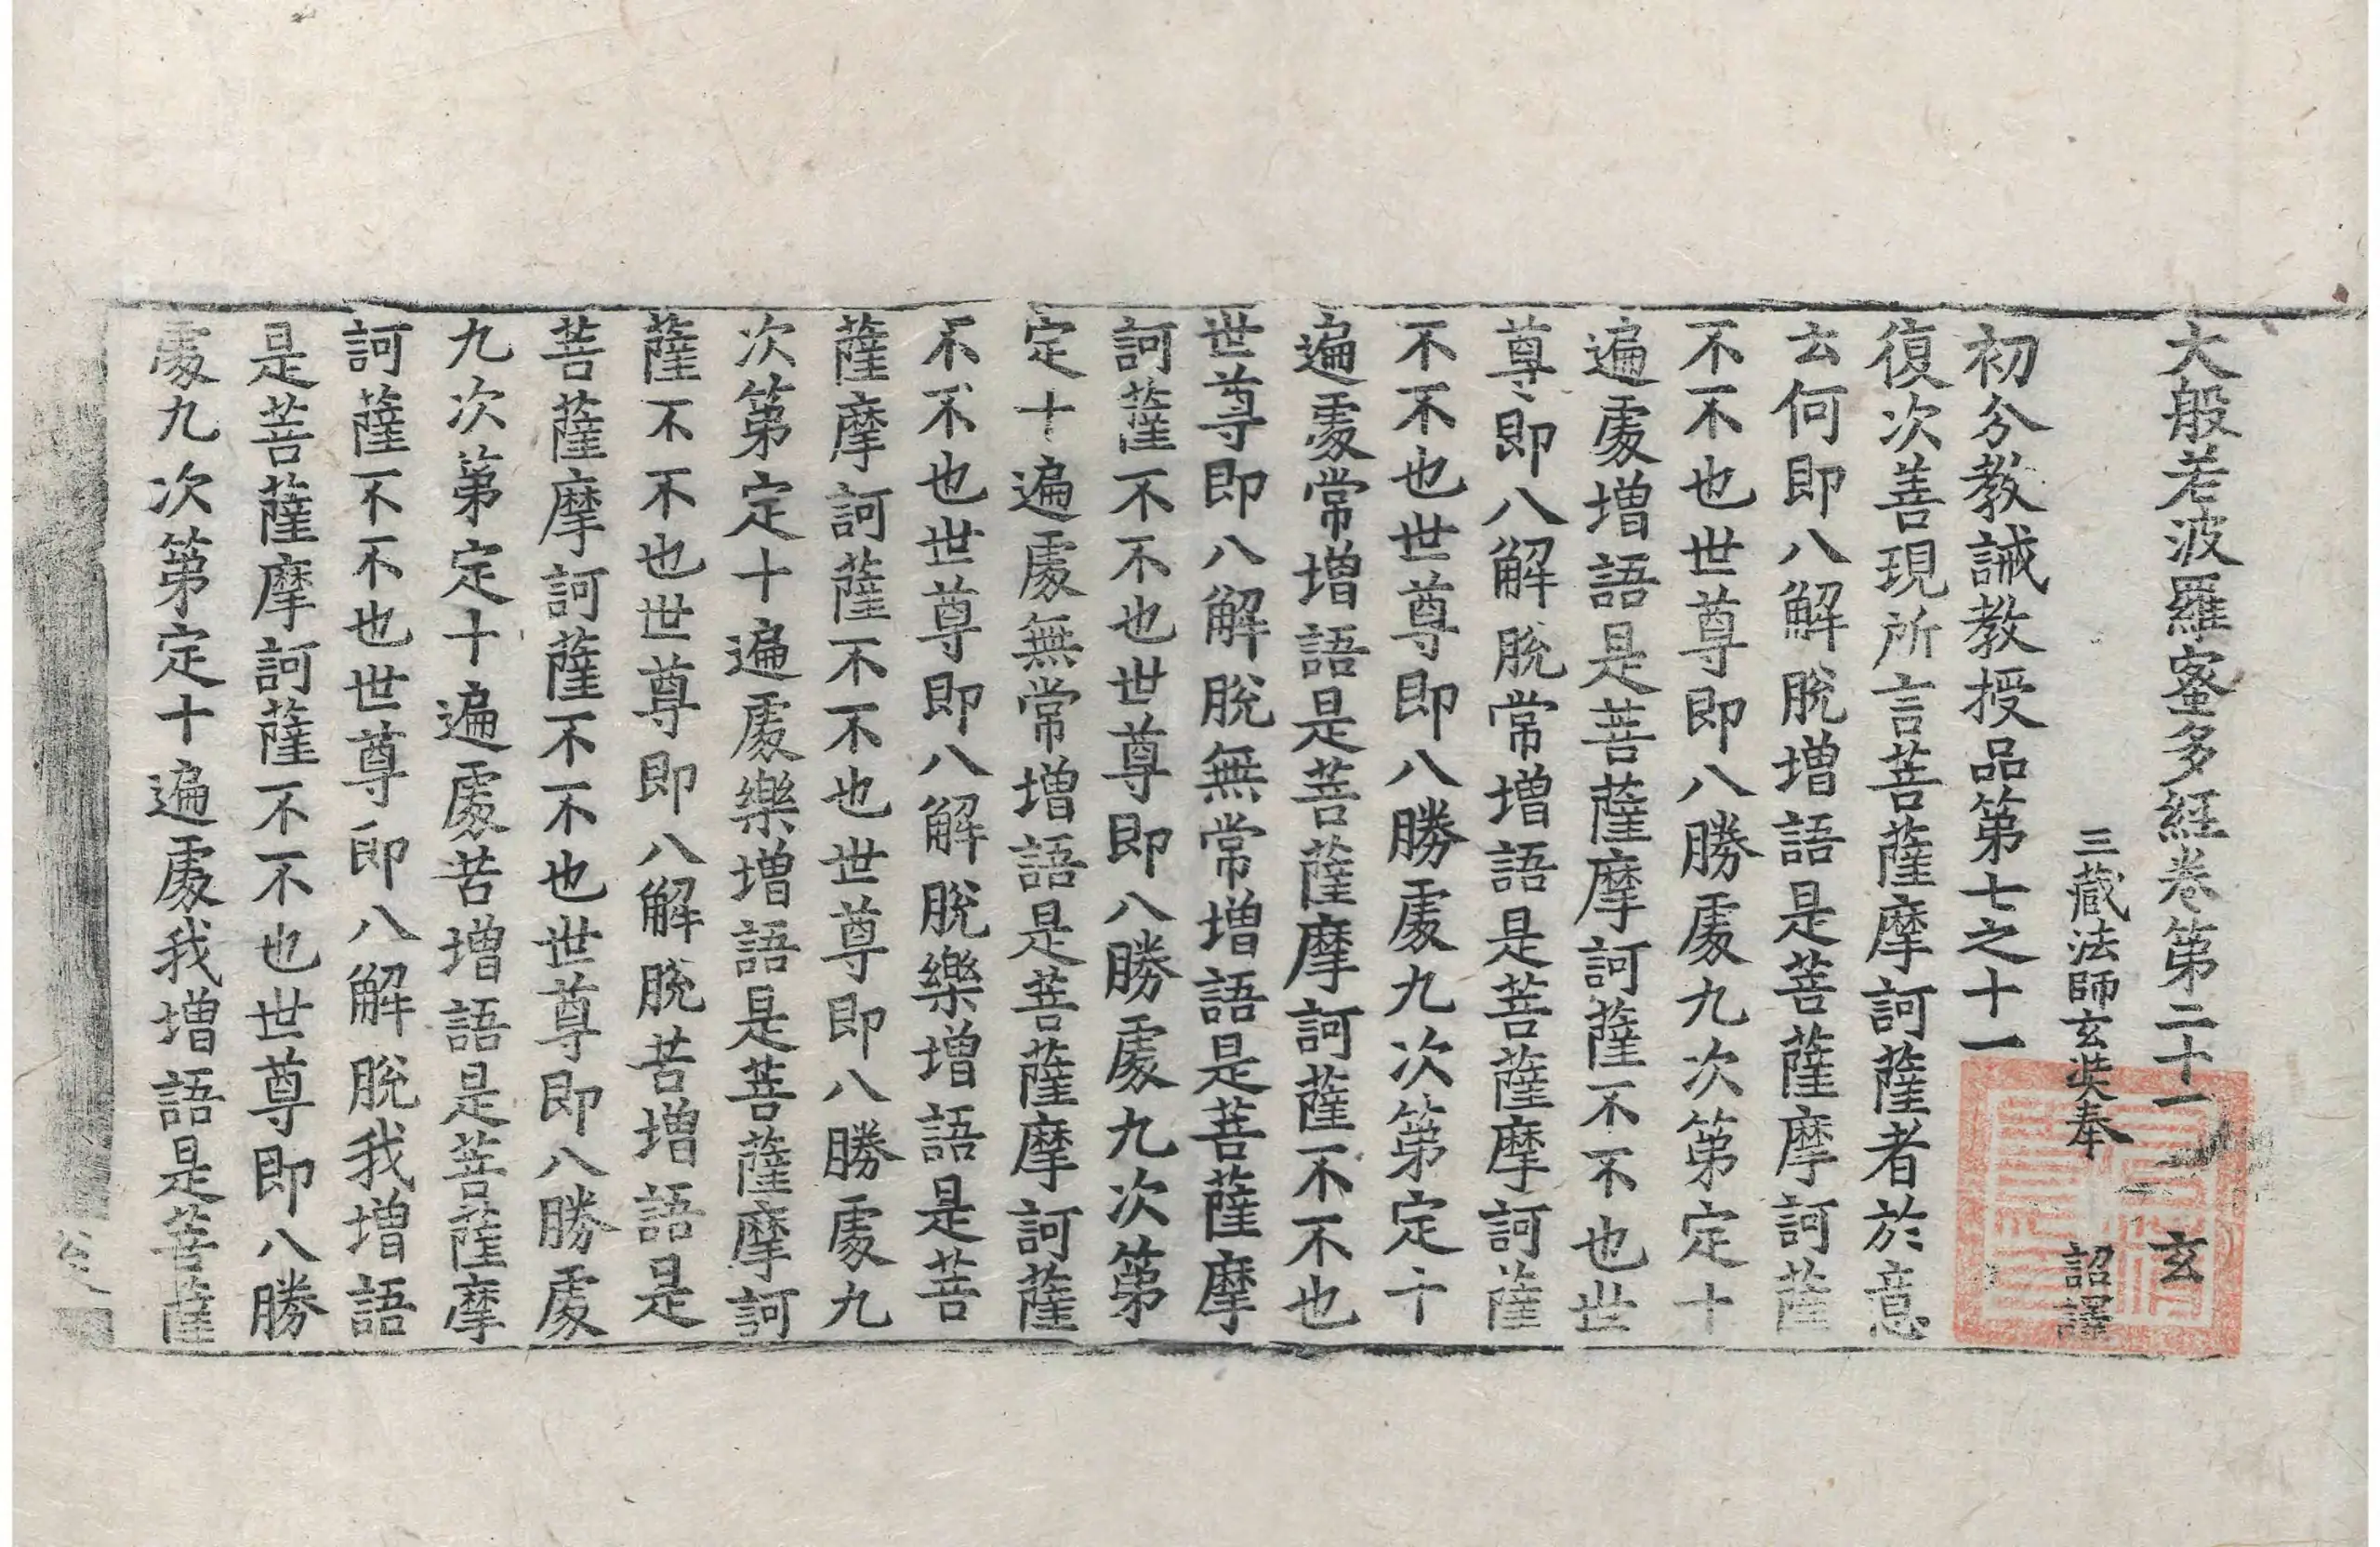 大般若波羅蜜多経卷第二十一　玄
三藏法師玄奘奉　詔譯
初分教誡教授品第七之十一
復次善現所言菩薩摩訶薩者於意
云何即八解脫增語是菩薩摩訶薩
不不也世尊即八勝處九次第定十
遍處增語是菩薩摩訶薩不不也世
尊即八解脫常增語是菩薩摩訶薩
不不也世尊即八勝處九次第定十
遍處常增語是菩薩摩訶薩不不也
世尊即八解脫無常增語是菩薩摩
訶薩不不也世尊即八勝處九次第
定十遍處無常增語是菩薩摩訶薩
不不也世尊即八解脫樂增語是菩
薩摩訶薩不不也世尊即八勝處九
次第定十遍處樂增語是菩薩摩訶
薩不不也世尊即八解脫苦增語是
菩薩摩訶薩不不也世尊即八勝處
九次第定十遍處苦增語是菩薩摩
訶薩不不也世尊即八解脫我增語
是菩薩摩訶薩不不也世尊即八勝
處九次第定十遍處我增語是菩薩